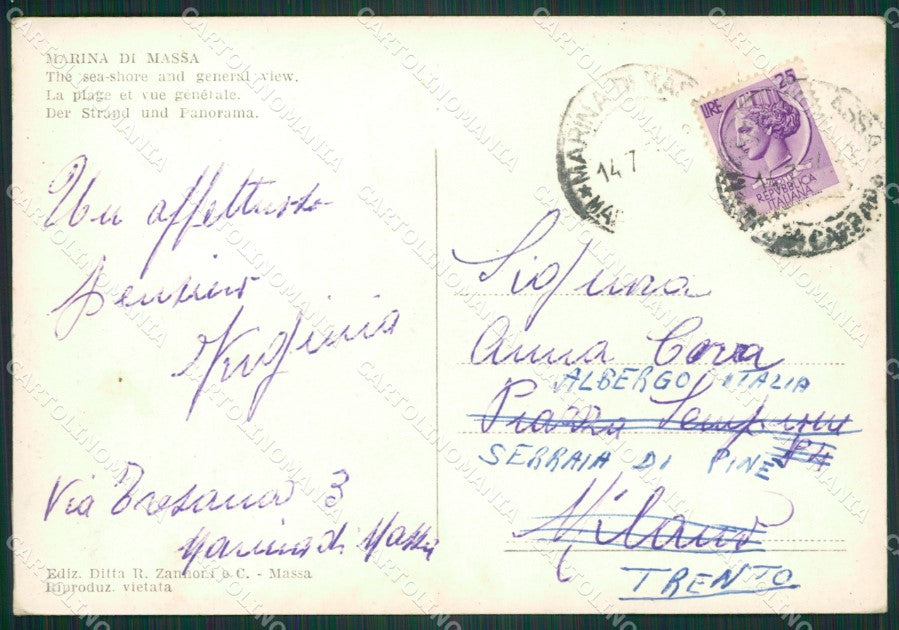 MARINA DI MASSA
The sea-shore and general view.
La plage et vue genétale.
Der Strand und Panorama.
Un affettuoso
pensiero
Virginia
Via Tresana 3
Marina di Massa
Ediz. Ditta R. Zannoni e C. - Massa
Riproduz. vietata
MARINA DI MAS
14 7
MA
LIRE 25
REPVBBLICA
ITALIANA
Signora
Anna Cova
ALBERGO ITALIA
Piazza Sempione
SERRAIA DI PINE
Milano
TRENTO
CARTOLINOMANIA